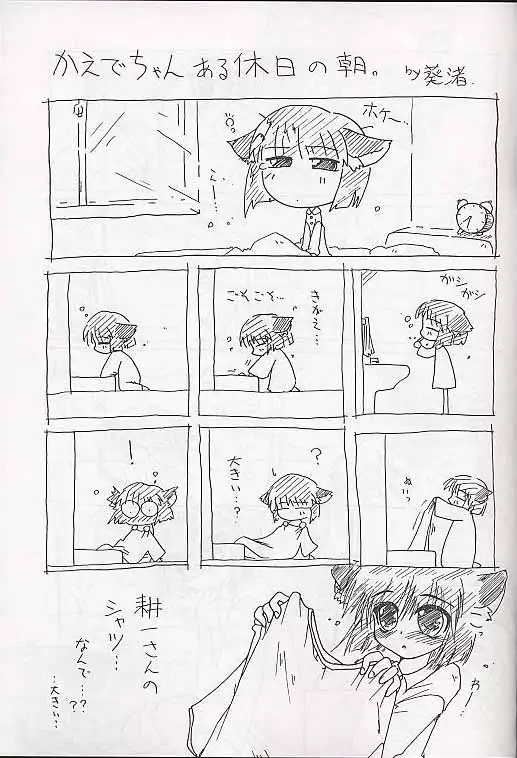 かえでちゃんある休日の朝。 by葵渚.
ホケー…
んー…
ガシガシ
きがえ…
ごそごそ…
ぬいっ
?
大きい…?
!
耕一さんの
シャツ…
なんで…??
…大きい…
わー…